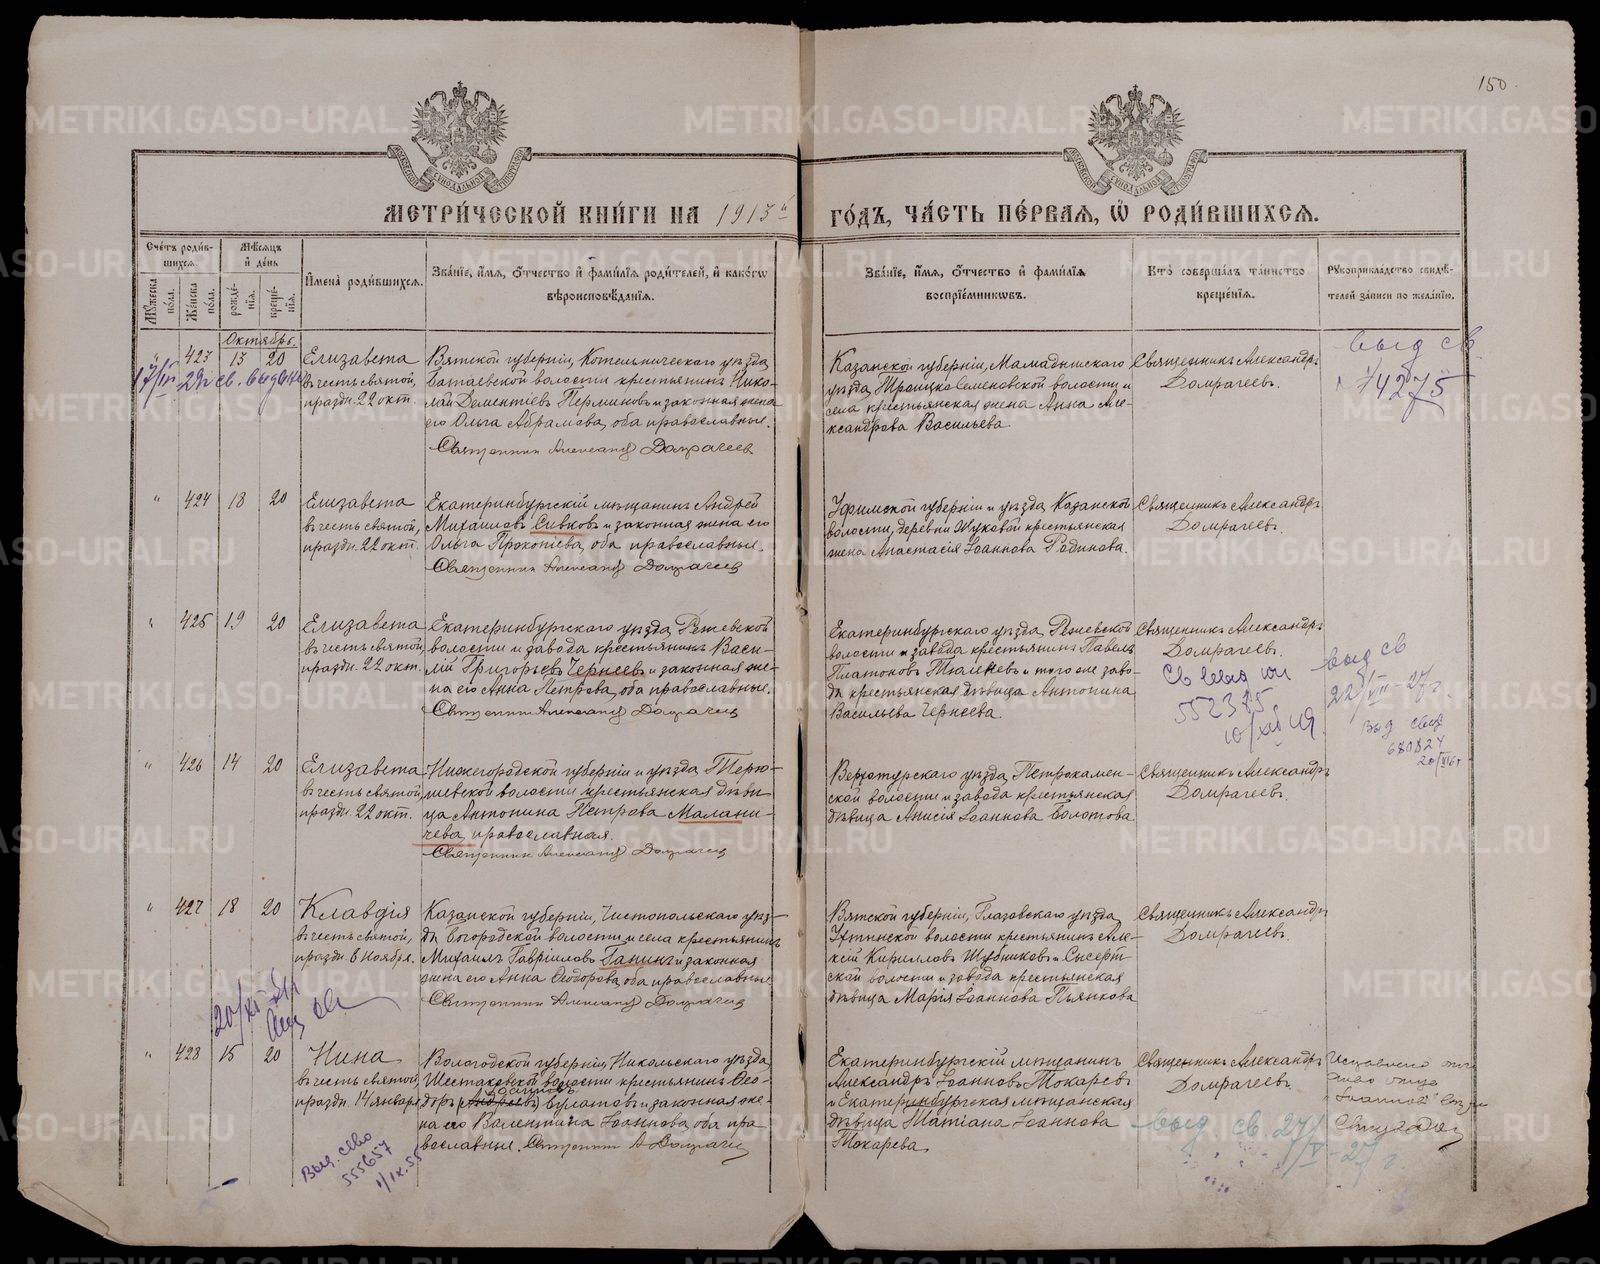 150.
МЕТРИ́ЧЕСКОЙ КНИ́ГИ НА 1913й
ГО́ДЪ, ЧА́СТЬ ПЕ́РВАЯ, Ѽ РОДИ́ВШИХСЯ.
Сче́тъ роди́в-
шихся.
Мꙋ́жеска по́ла.
Же́нска по́ла.
Мѣ́сяцъ
и҆ де́нь
рожде́нїя.
креще́нїя.
И҆мена̀ роди́вшихся.
Зва́нїе, и҆́мя, ѻ҆́тчество и҆ фами́лїя роди́телей, и҆ како́гѡ
вѣроисповѣ́данїя.
Зва́нїе, и҆́мя, ѻ҆́тчество и҆ фами́лїя
воспрїе́мникѡвъ.
Кто̀ соверша́лъ та́инство
креще́нїя.
Рꙋкоприкла́дство свидѣ́-
телей за́писи по жела́нїю.
Октябрь.
" 423 13 20
Елизавета
въ честь святой,
праздн. 22 окт.
Вятской губерніи, Котельническаго уѣзда,
Батаевской волости крестьянинъ Нико-
лай Дементіевъ Перминовъ и законная жена
его Ольга Абрамова, оба православные.
Священникъ Александръ Домрачеевъ
Казанской губерніи, Мамадышскаго
уѣзда, Троицко Семеновской волости и
села крестьянская жена Анна Але-
ксандрова Васильева.
Священникъ Александръ
Домрачеевъ.
выд св
74275
" 424 18 20
Елизавета
въ честь святой,
праздн. 22 окт.
Екатеринбургскій мѣщанинъ Андрей
Михаиловъ Сивковъ и законная жена его
Ольга Прокопіева, оба православные.
Священникъ Александръ Домрачеевъ
Уфимской губерніи и уѣзда, Казанской
волости, деревни Жуковой крестьянская
жена Анастасія Іоаннова Родинова.
Священникъ Александръ
Домрачеевъ.
" 425 19 20
Елизавета
въ честь святой,
праздн. 22 окт.
Екатеринбургскаго уѣзда, Режевской
волости и завода крестьянинъ Васи-
лій Григорьевъ Чернеевъ и законная же-
на его Анна Петрова, оба православные.
Священникъ Александръ Домрачеевъ
Екатеринбургскаго уѣзда, Режевской
волости и завода крестьянинъ Павелъ
Платоновъ и того же заво-
да крестьянская дѣвица Антонина
Васильева Чернеева.
Священникъ Александръ
Домрачеевъ.
552375
выд св
22/VII-27 г.
выд свид
" 426 14 20
Елизавета
въ честь святой,
праздн. 22 окт.
Нижегородской губерніи и уѣзда, Терю-
шевской волости крестьянская дѣви-
ца Антонина Петрова Малани-
чева, православная.
Священникъ Александръ Домрачеевъ
Верхотурскаго уѣзда, Петрокамен-
ской волости и завода крестьянская
дѣвица Анисія Іоаннова Болотова
Священникъ Александръ
Домрачеевъ.
" 427 18 20
Клавдія
въ честь святой,
праздн. 6 ноября.
Казанской губерніи, Чистопольскаго уѣз-
да, Богородской волости и села крестьянинъ
Михаилъ Гавріиловъ Ганинъ и законная
жена его Анна Ѳеодорова, оба православные
Священникъ Александръ Домрачеевъ
Вятской губерніи, Глазовскаго уѣзда,
волости крестьянинъ Але-
ксій Кирилловъ Шубниковъ и Сысерт-
ской волости и завода крестьянская
дѣвица Марія Іоаннова Пьянкова
Священникъ Александръ
Домрачеевъ.
" 428 15 20
Нина
въ честь святой,
праздн. 14 января
Вологодской губерніи, Никольскаго уѣзда,
Шестаковской волости крестьянинъ Ѳео-
доръ Булатовъ и законная же-
на его Валентина Іоаннова, оба пра-
вославные. Священникъ А Домрачеевъ
Екатеринбургскій мѣщанинъ
Александръ Іоанновъ Токаревъ
и Екатеринбургская мѣщанская
дѣвица Татіана Іоаннова
Токарева.
Священникъ Александръ
Домрачеевъ.
выд. св. 27/V-27 г.
Выд. св-во
555657
1/IX.55